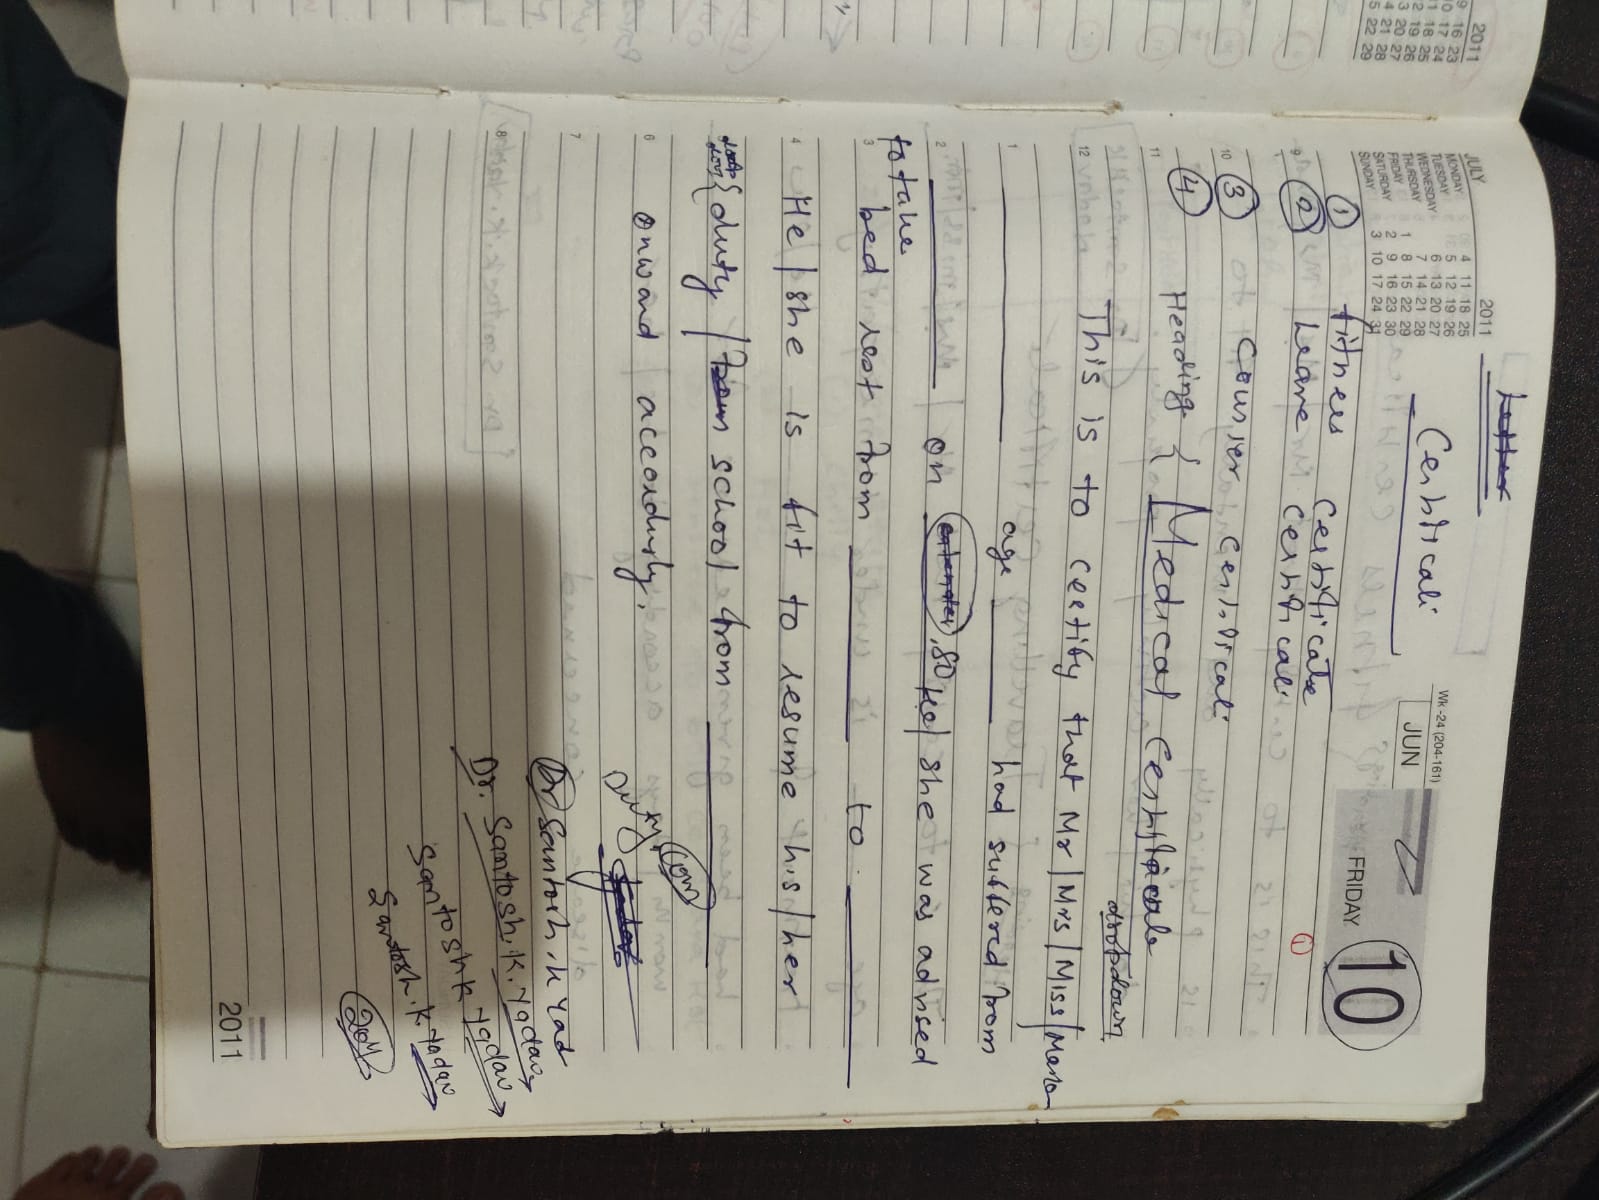 2011
9 16 23
10 17 24
11 18 25
12 19 26
13 20 27
14 21 28
15 22 29
Letter
JULY 2011
MONDAY 4 11 18 25
TUESDAY 5 12 19 26
WEDNESDAY 6 13 20 27
THURSDAY 7 14 21 28
FRIDAY 1 8 15 22 29
SATURDAY 2 9 16 23 30
SUNDAY 3 10 17 24 31
Wk -24 (204-161)
JUN
FRIDAY 10
Certificate
1 fitness Certificate
1
9
2 Leave Certificate
10
3 Courier Certificate
4 Heading { Medical Certificate
11
dropdown
12 This is to certify that Mr/Mrs/Miss/
1 ______ age ______ had suffered from
2 ______ on calender, so He/she was advised
to take
3 bed rest from ______ to ______
4 He/she is fit to resume his/her
{ duty / from school from ______
6 onward accordingly.
Duty.com
7
Dr Santosh.K Yad
Dr. Santosh.K.Yadav
8
Santosh K Yadav
Santosh.K.Yadav
204
2011